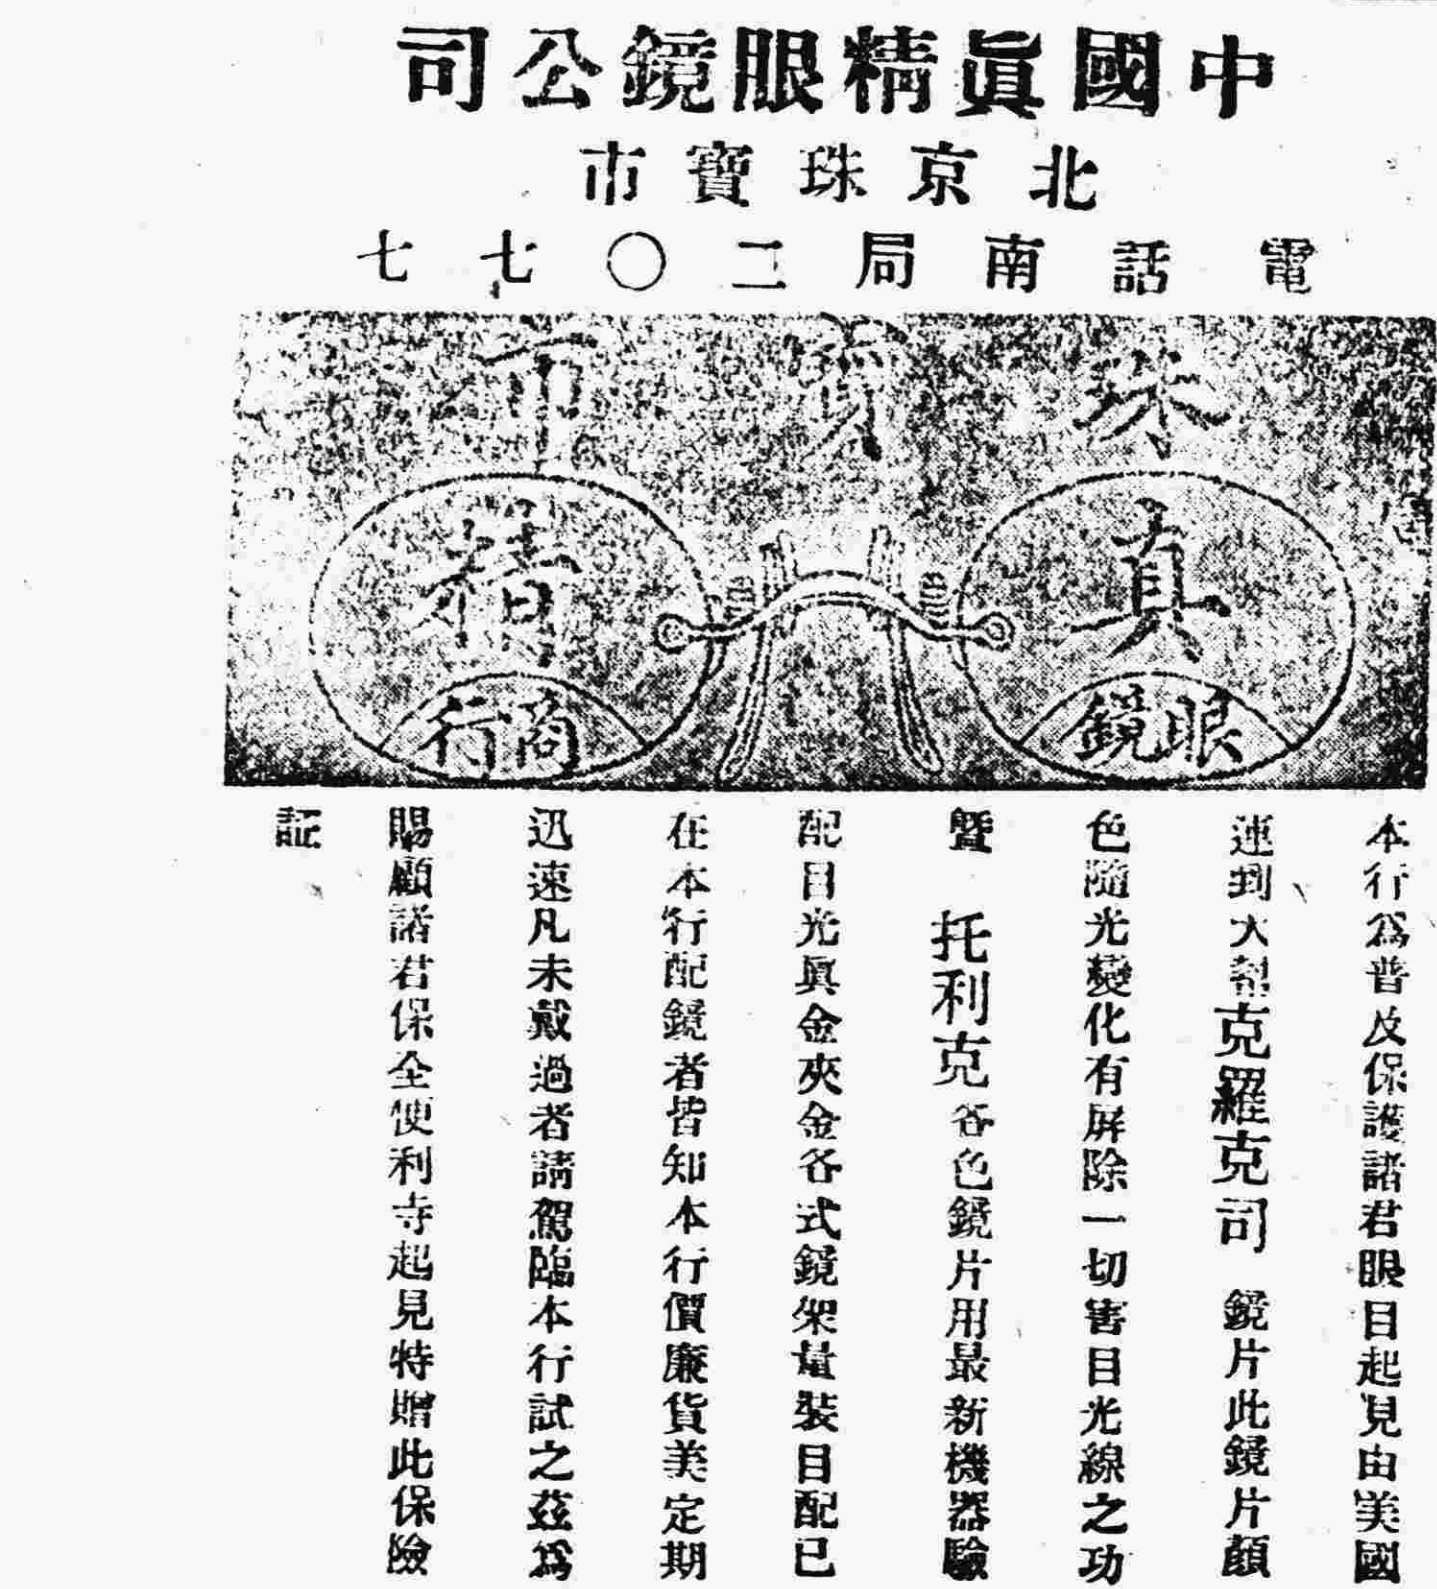 中國眞精眼鏡公司
北京珠寶市
電話南局二〇七七
珠寶市
真精
眼鏡
商行
本行為普及保護諸君眼目起見由美國
運到大幫克羅克司鏡片此鏡片顏
色隨光變化有屏除一切害目光線之功
暨托利克各色鏡片用最新機器驗
配目光眞金夾金各式鏡架量裝目配已
在本行配鏡者皆知本行價廉貨美定期
迅速凡未戴過者請駕臨本行試之茲為
賜顧諸君保全便利寺起見特贈此保險
証